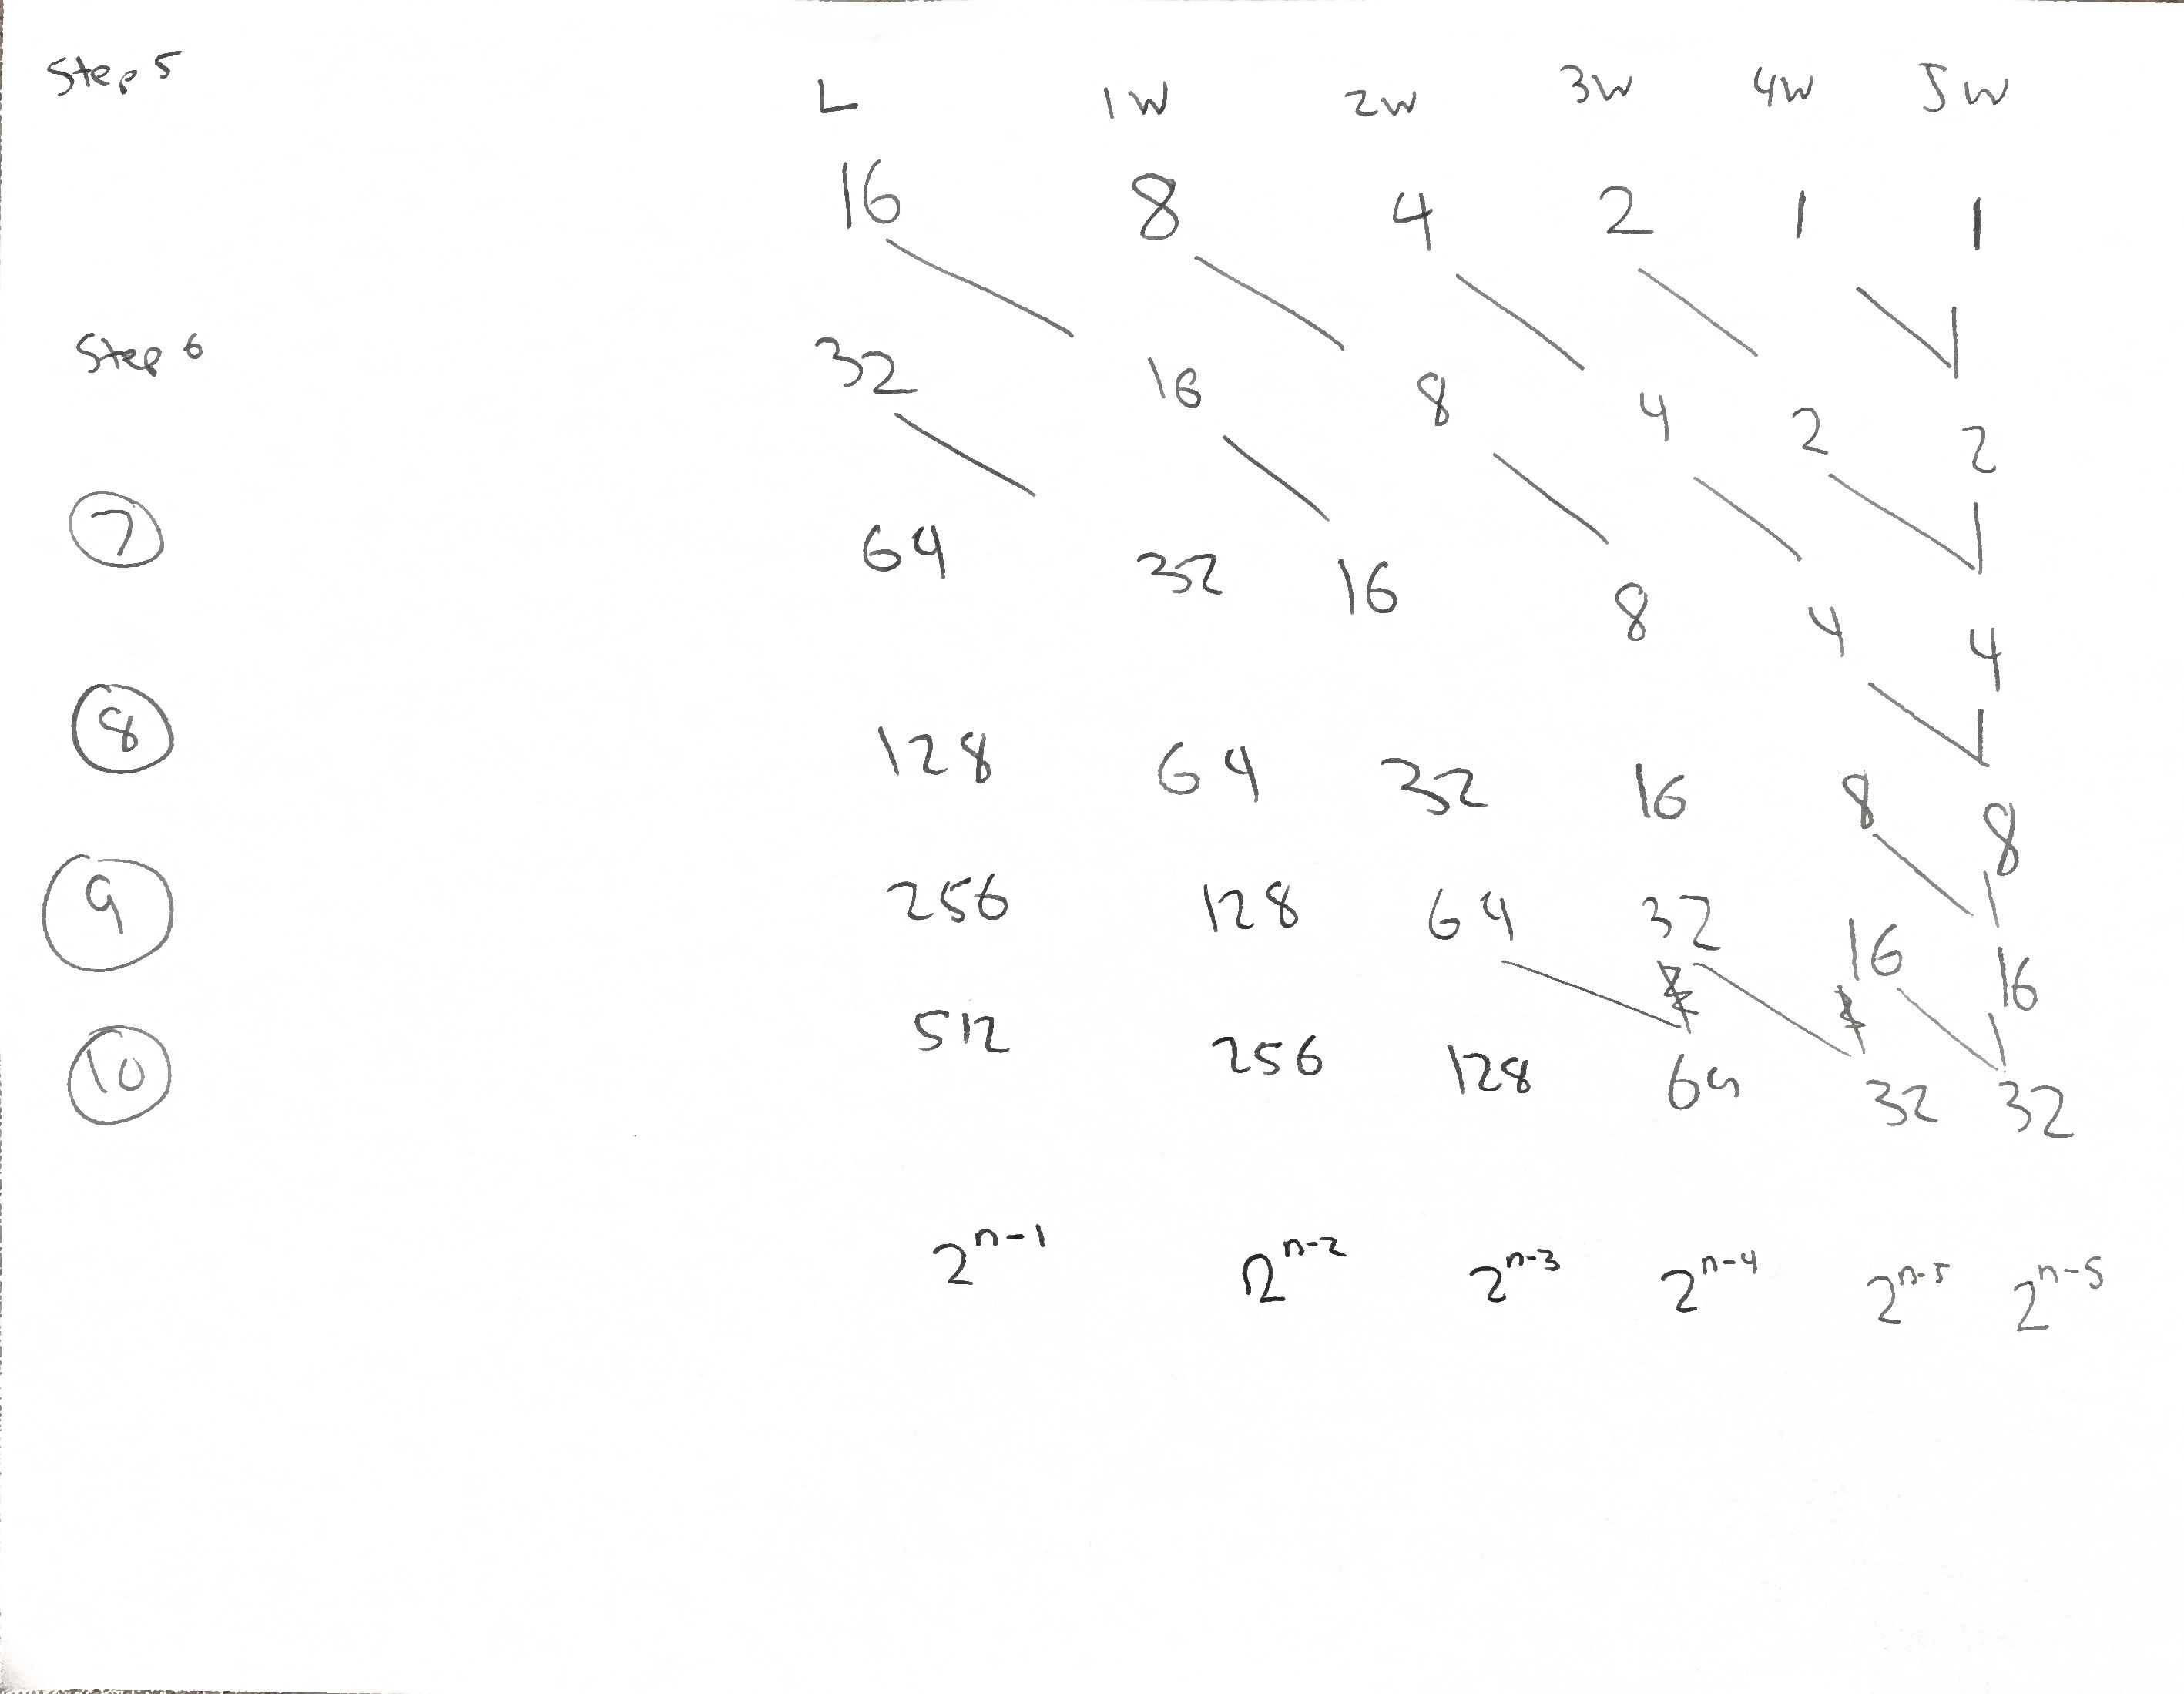 Step 5 L 1W 2W 3W 4W 5W
16 8 4 2 1 1
Step 6 32 16 8 4 2 2
7 64 32 16 8 4 4
8 128 64 32 16 8 8
9 256 128 64 32 16 16
10 512 256 128 64 32 32
2^n-1 2^n-2 2^n-3 2^n-4 2^n-5 2^n-5